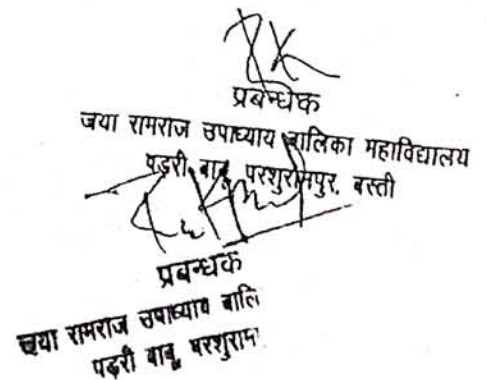 प्रबन्धक
जया रामराज उपाध्याय बालिका महाविद्यालय
पड़री बाबू परशुरामपुर, बस्ती
प्रबन्धक
जया रामराज उपाध्याय बालि
पड़री बाबू परशुराम